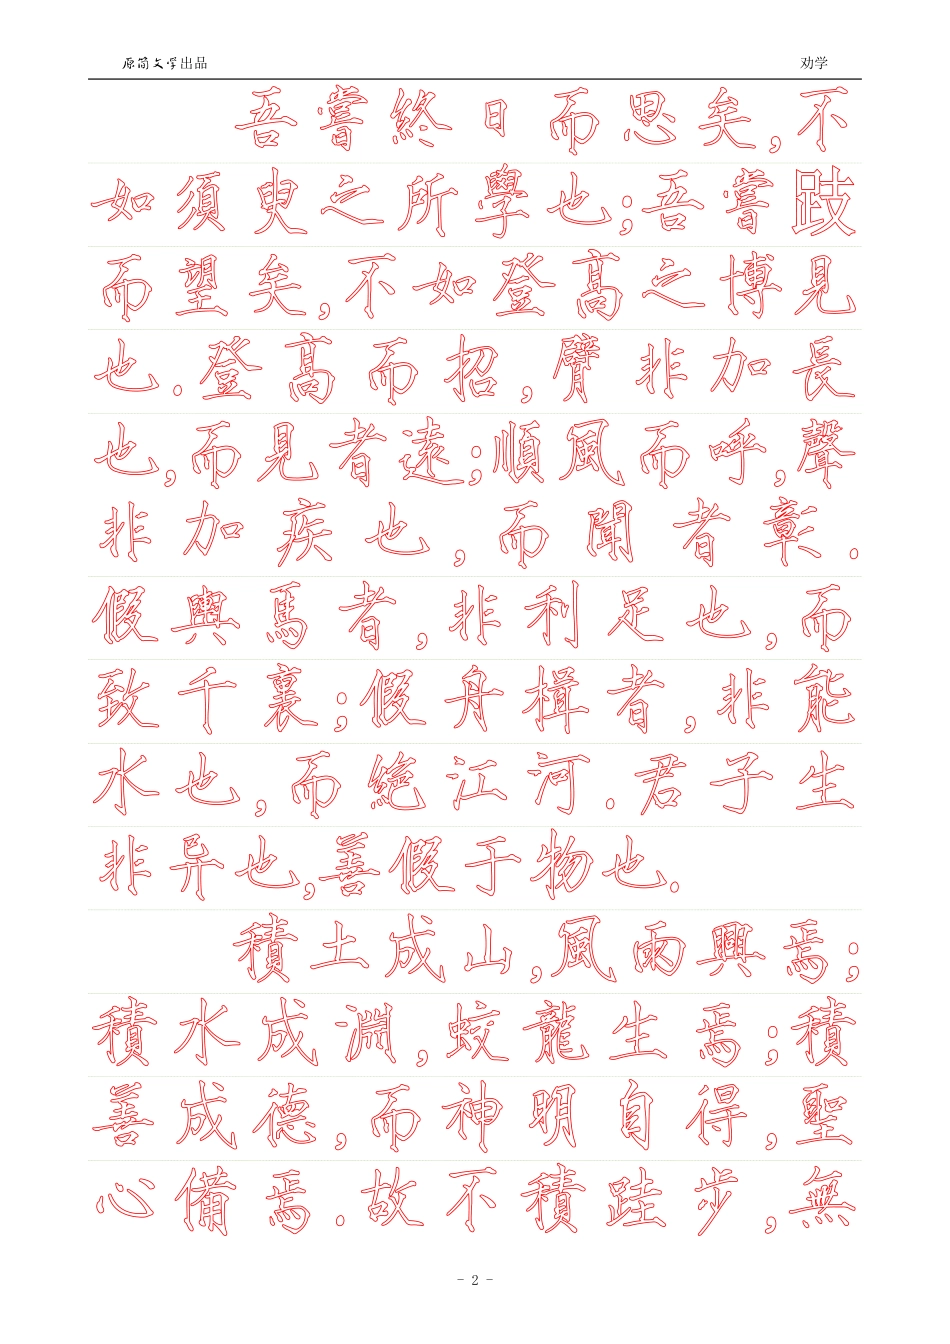 原简文学出品 劝学
吾嘗終日而思矣,不
如須臾之所學也;吾嘗跂
而望矣,不如登高之博見
也.登高而招,臂非加長
也,而見者遠;順風而呼,聲
非加疾也,而聞者彰.
假輿馬者,非利足也,而
致千裏;假舟楫者,非能
水也,而絕江河.君子生
非异也,善假于物也.
積土成山,風雨興焉;
積水成淵,蛟龍生焉;積
善成德,而神明自得,聖
心備焉.故不積跬步,無
- 2 -